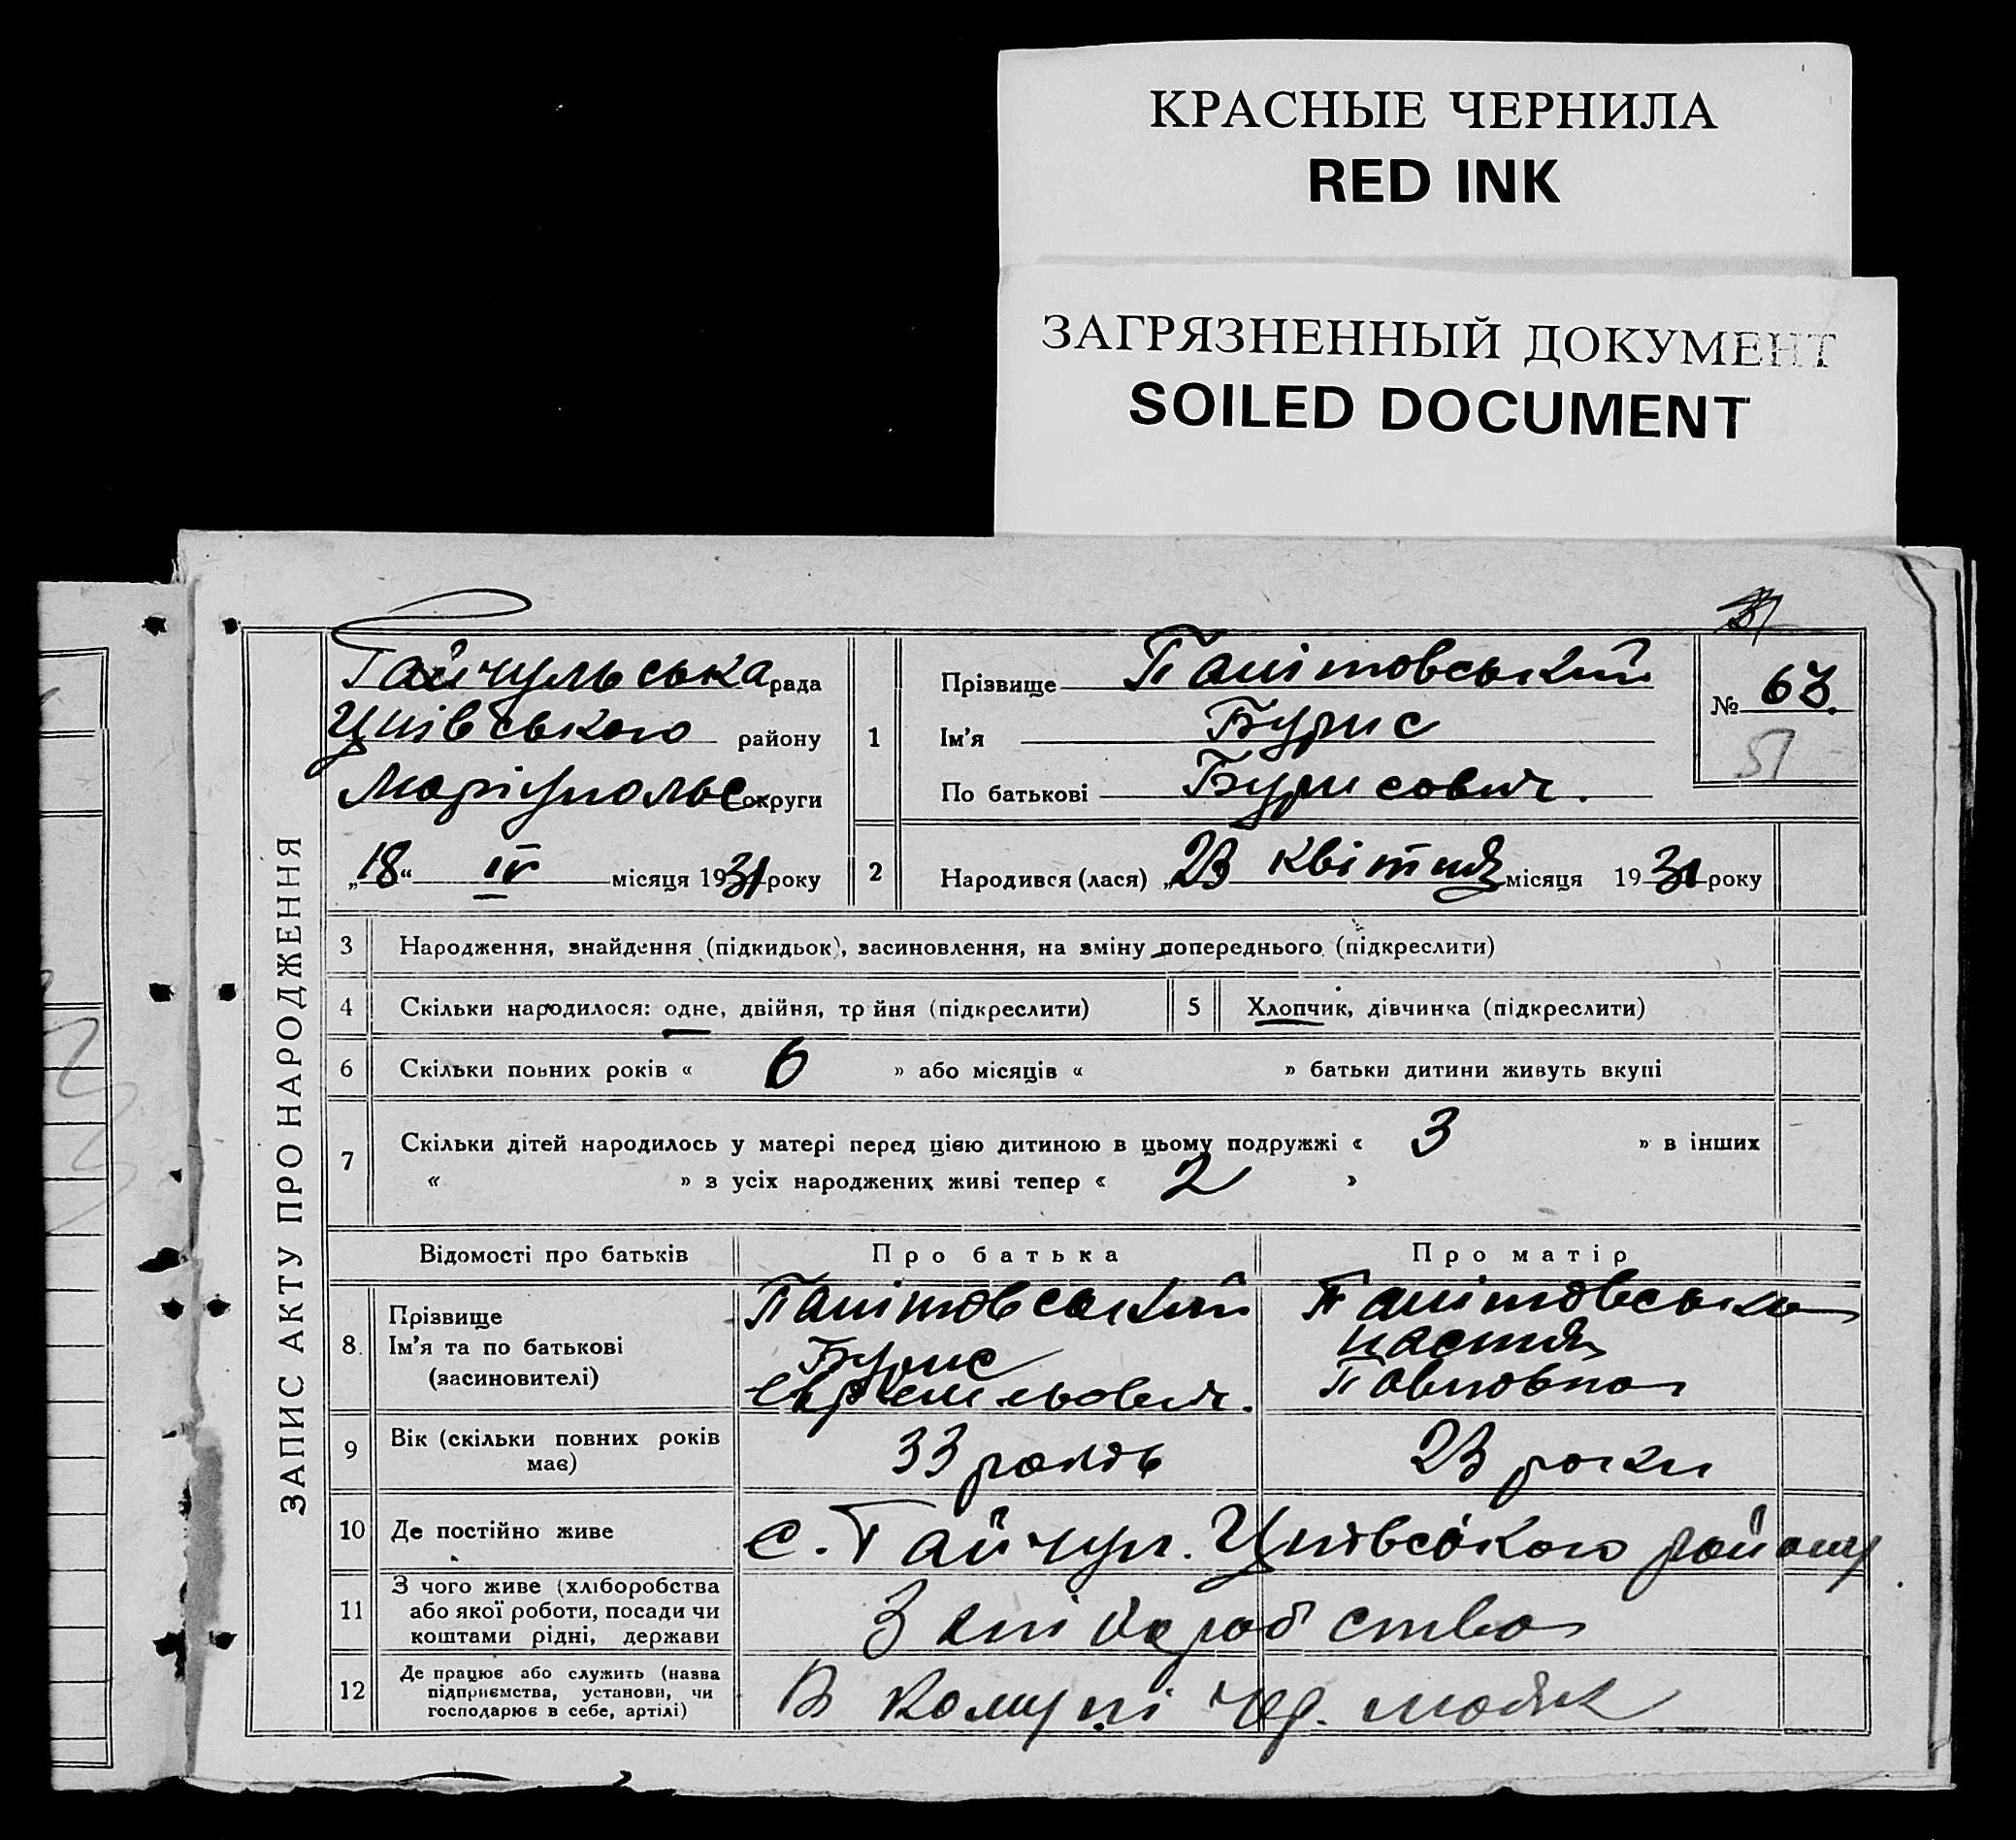 КРАСНЫЕ ЧЕРНИЛА
RED INK
ЗАГРЯЗНЕННЫЙ ДОКУМЕНТ
SOILED DOCUMENT
ЗАПИС АКТУ ПРО НАРОДЖЕННЯ
Гайчульська рада
району
Маріупольс округи
„18“ IV місяця 1931 року
1
Прізвище
Ім’я Бурис
По батькові Бурисович.
№ 63.
51
2 Народився (лася) „23 квітня місяця 1931 року
3 Народження, знайдення (підкидьок), засиновлення, на зміну попереднього (підкреслити)
4 Скільки народилося: одне, двійня, тр йня (підкреслити)
5 Хлопчик, дівчинка (підкреслити)
6 Скільки повних років « 6 » або місяців « » батьки дитини живуть вкупі
7 Скільки дітей народилось у матері перед цією дитиною в цьому подружжі « 3 » в інших
« » з усіх народжених живі тепер « 2 »
Відомості про батьків Про батька Про матір
8. Прізвище
Ім’я та по батькові
(засиновителі)
Бурис
Настя
Павловна
9 Вік (скільки повних років
має)
33 років 23 роки
10 Де постійно живе с. Гайчул. району
11 З чого живе (хліборобства
або якої роботи, посади чи
коштами рідні, держави
З хліборобства
12 Де працює або служить (назва
підприємства, установи, чи
господарює в себе, артілі)
В комуні чер. маяк